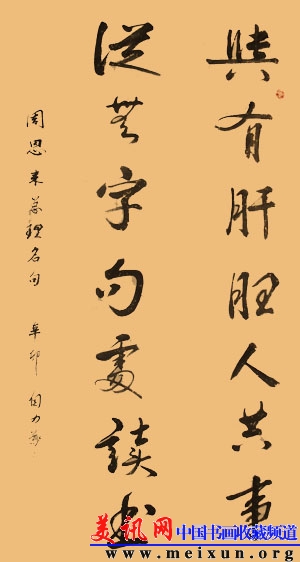 與有肝胆人共事
從無字句處讀書
周恩来總理名句 辛卯
美讯网 中国书画收藏频道
www.meixun.org